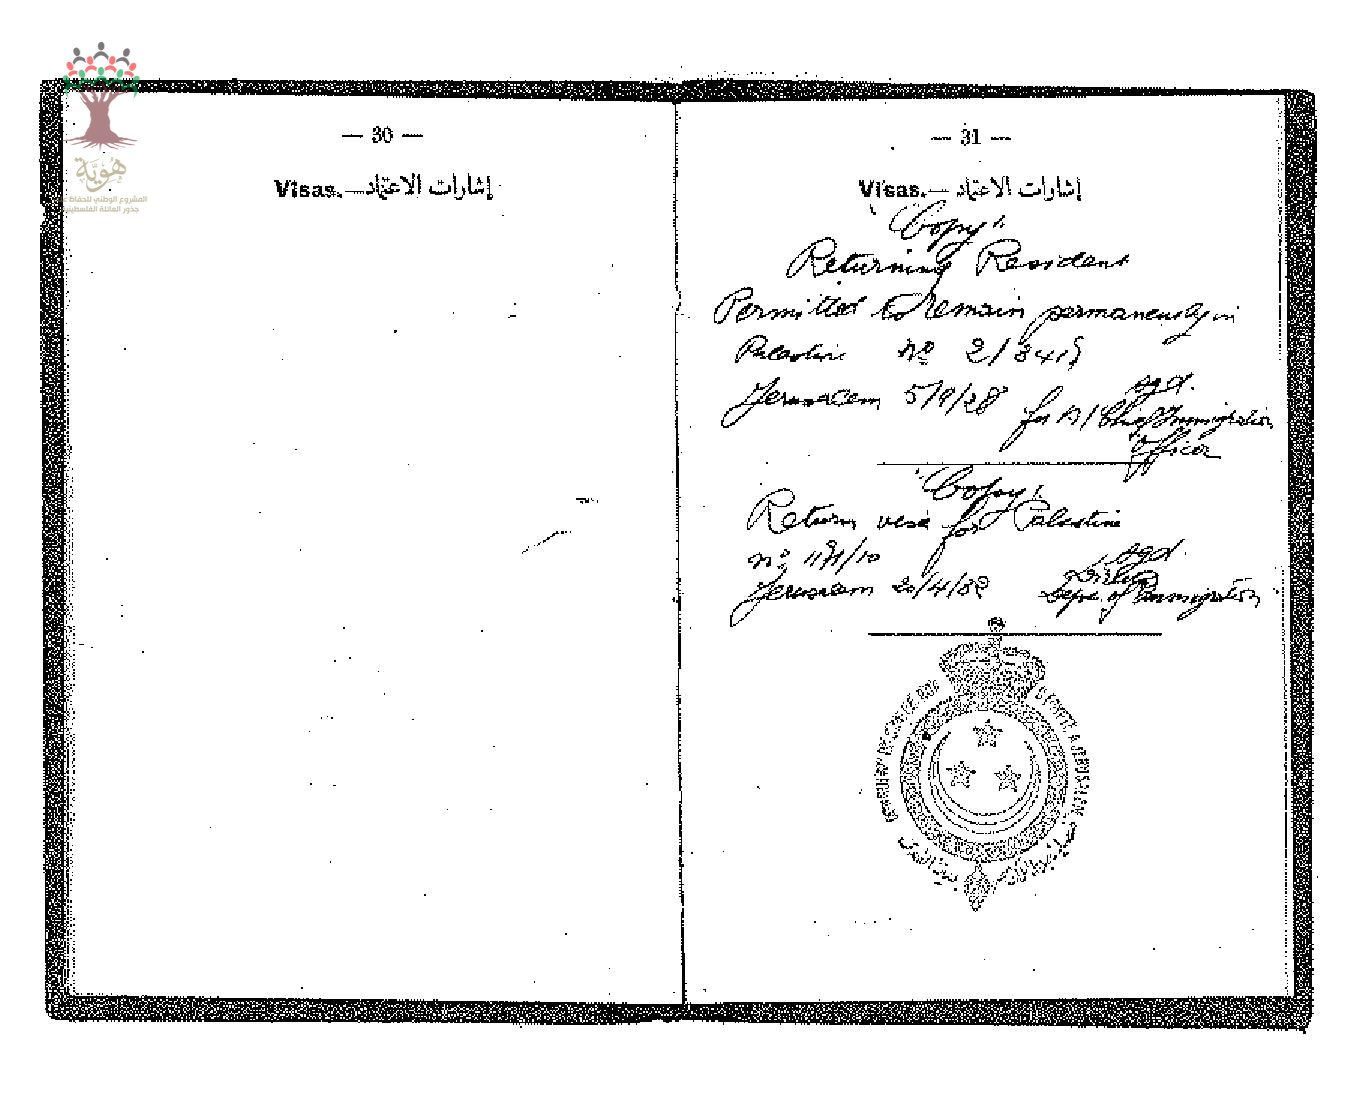 هُوِيَّة
المشروع الوطني للحفاظ
جذور العائلة الفلسطينية
— 30 —
Visas.—إشارات الاعتماد
— 31 —
Visas.— إشارات الاعتماد
"Copy"
Returning Resident
Permitted to remain permanently in
Palestine No 2/3419
Jerusalem 5/9/28 sgd.
for A/Chief Immigration
Officer
"Copy"
Return visa for Palestine
No 11/1/10 sgd.
Jerusalem 20/4/32
Dept. of Immigration
CONSULAT DE ROYAL D'EGYPTE A JERUSALEM